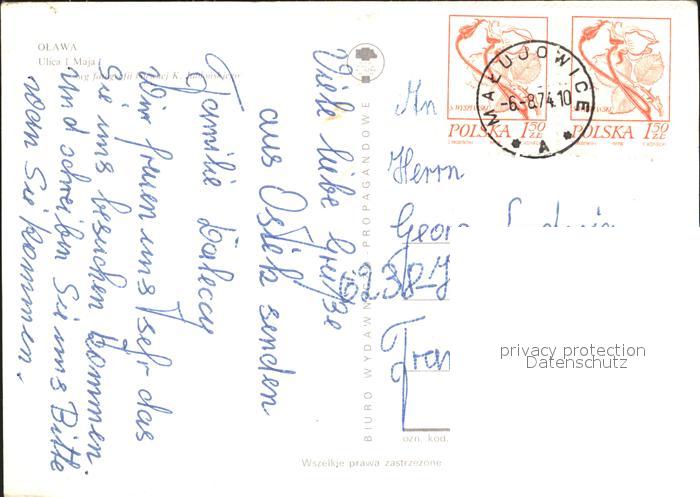 OŁAWA
Ulica 1 Maja
fotografii K.
Viele liebe Grüße
aus senden
Familie
Wir freuen uns sehr das
Sie uns besuchen kommen.
Und schreibn Sie uns Bitte
wan Sie kommen.
BIURO WYDAWN PROPAGANDOWE
MAŁUJOWICE
-6.-8.74.10
A
POLSKA 1,50 ZŁ
POLSKA 1,50 ZŁ
An
Herrn
Georg
6238-
Fran
ozn. kod.
Wszelkie prawa zastrzeżone
privacy protection
Datenschutz